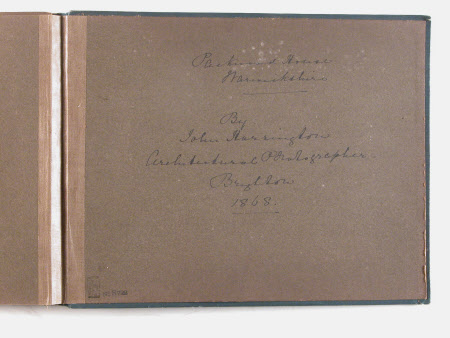 House
Warwickshire
By
John Harrington
Architectural Photographer
Brighton
1868.